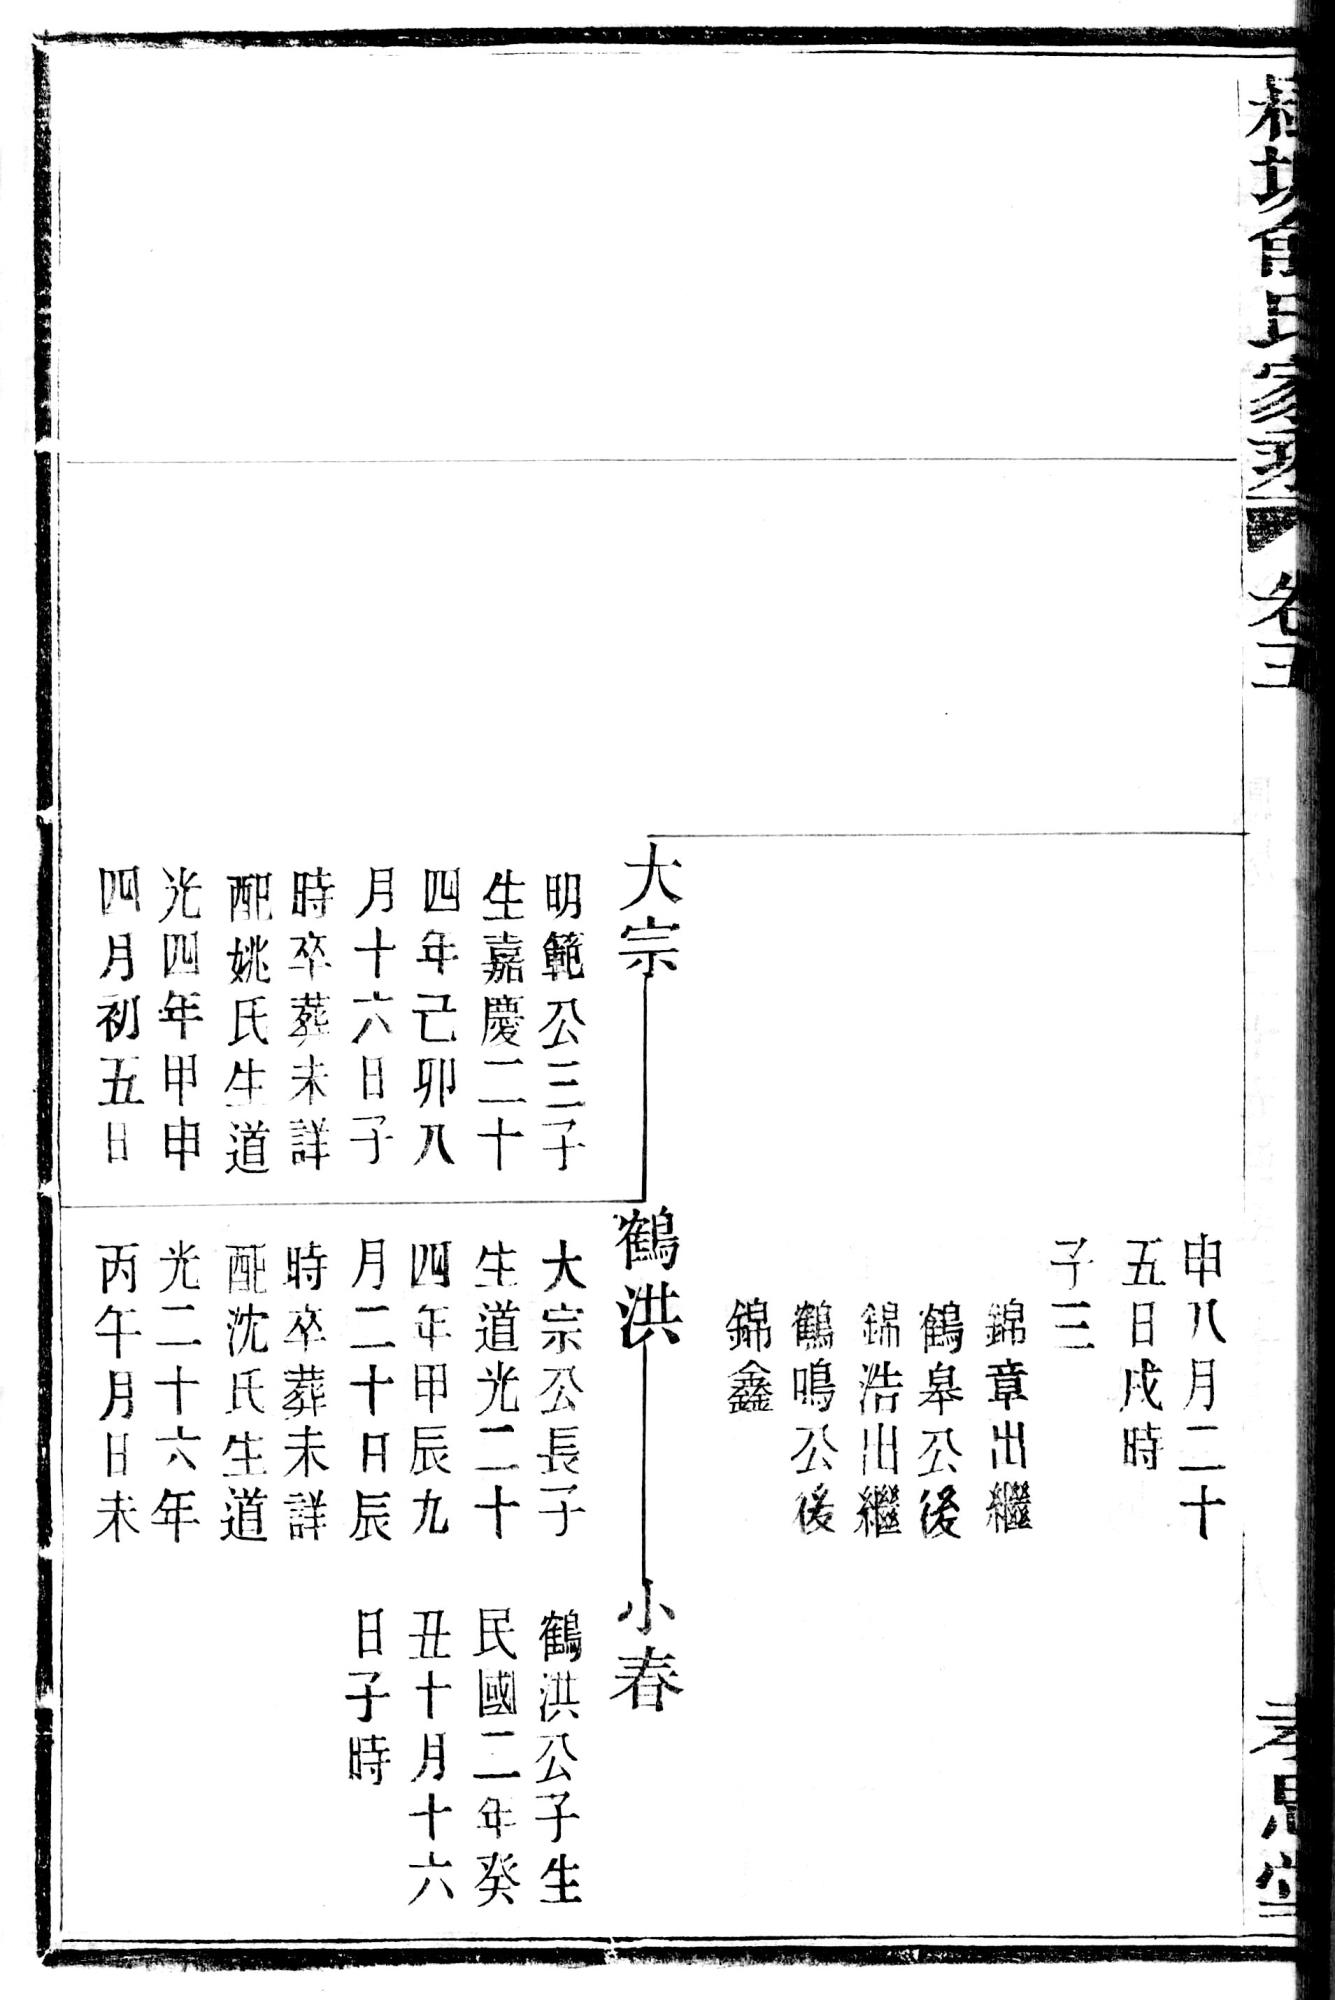 俞氏家
卷五
孝思堂
申八月二十
五日戌時
子三
錦章出繼
鶴皋公後
錦浩出繼
鶴鳴公後
錦鑫
大宗
明範公三子
生嘉慶二十
四年己卯八
月十六日子
時卒葬未詳
配姚氏生道
光四年甲申
四月初五日
鶴洪
大宗公長子
生道光二十
四年甲辰九
月二十日辰
時卒葬未詳
配沈氏生道
光二十六年
丙午月日未
小春
鶴洪公子生
民國二年癸
丑十月十六
日子時